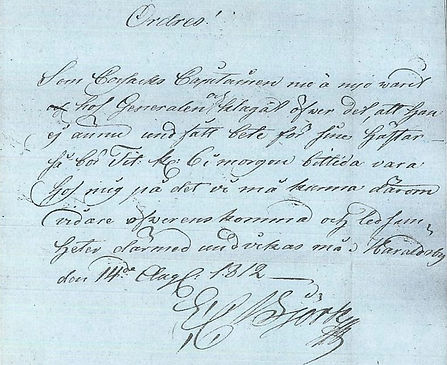 Ordres!
Som Cossacks Capitainen nu å nyo warit
hos Generalen och klagat öfwer det, att han
ej ännu undfått bete för sine hästar
så bör Tit. H: C i morgon bittida vara
hos mig på det vi må kunna därom
vidare öfwerens komma och ledsam-
heter därmed undvikas må. Haraldsby
den 14de Aug. 1812
Björk